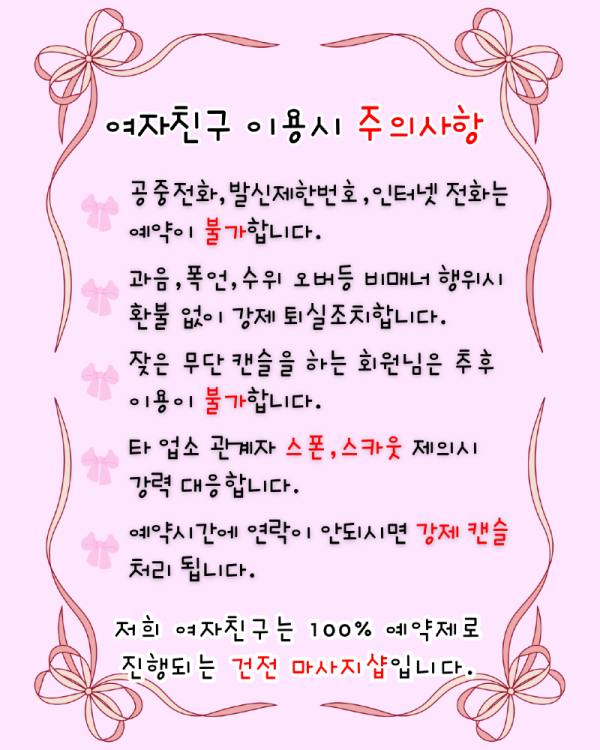 여자친구 이용시 주의사항
공중전화,발신제한번호,인터넷 전화는
예약이 불가합니다.
과음,폭언,수위 오버등 비매너 행위시
환불 없이 강제 퇴실조치합니다.
잦은 무단 캔슬을 하는 회원님은 추후
이용이 불가합니다.
타 업소 관계자 스폰,스카웃 제의시
강력 대응합니다.
예약시간에 연락이 안되시면 강제 캔슬
처리 됩니다.
저희 여자친구는 100% 예약제로
진행되는 건전 마사지샵입니다.